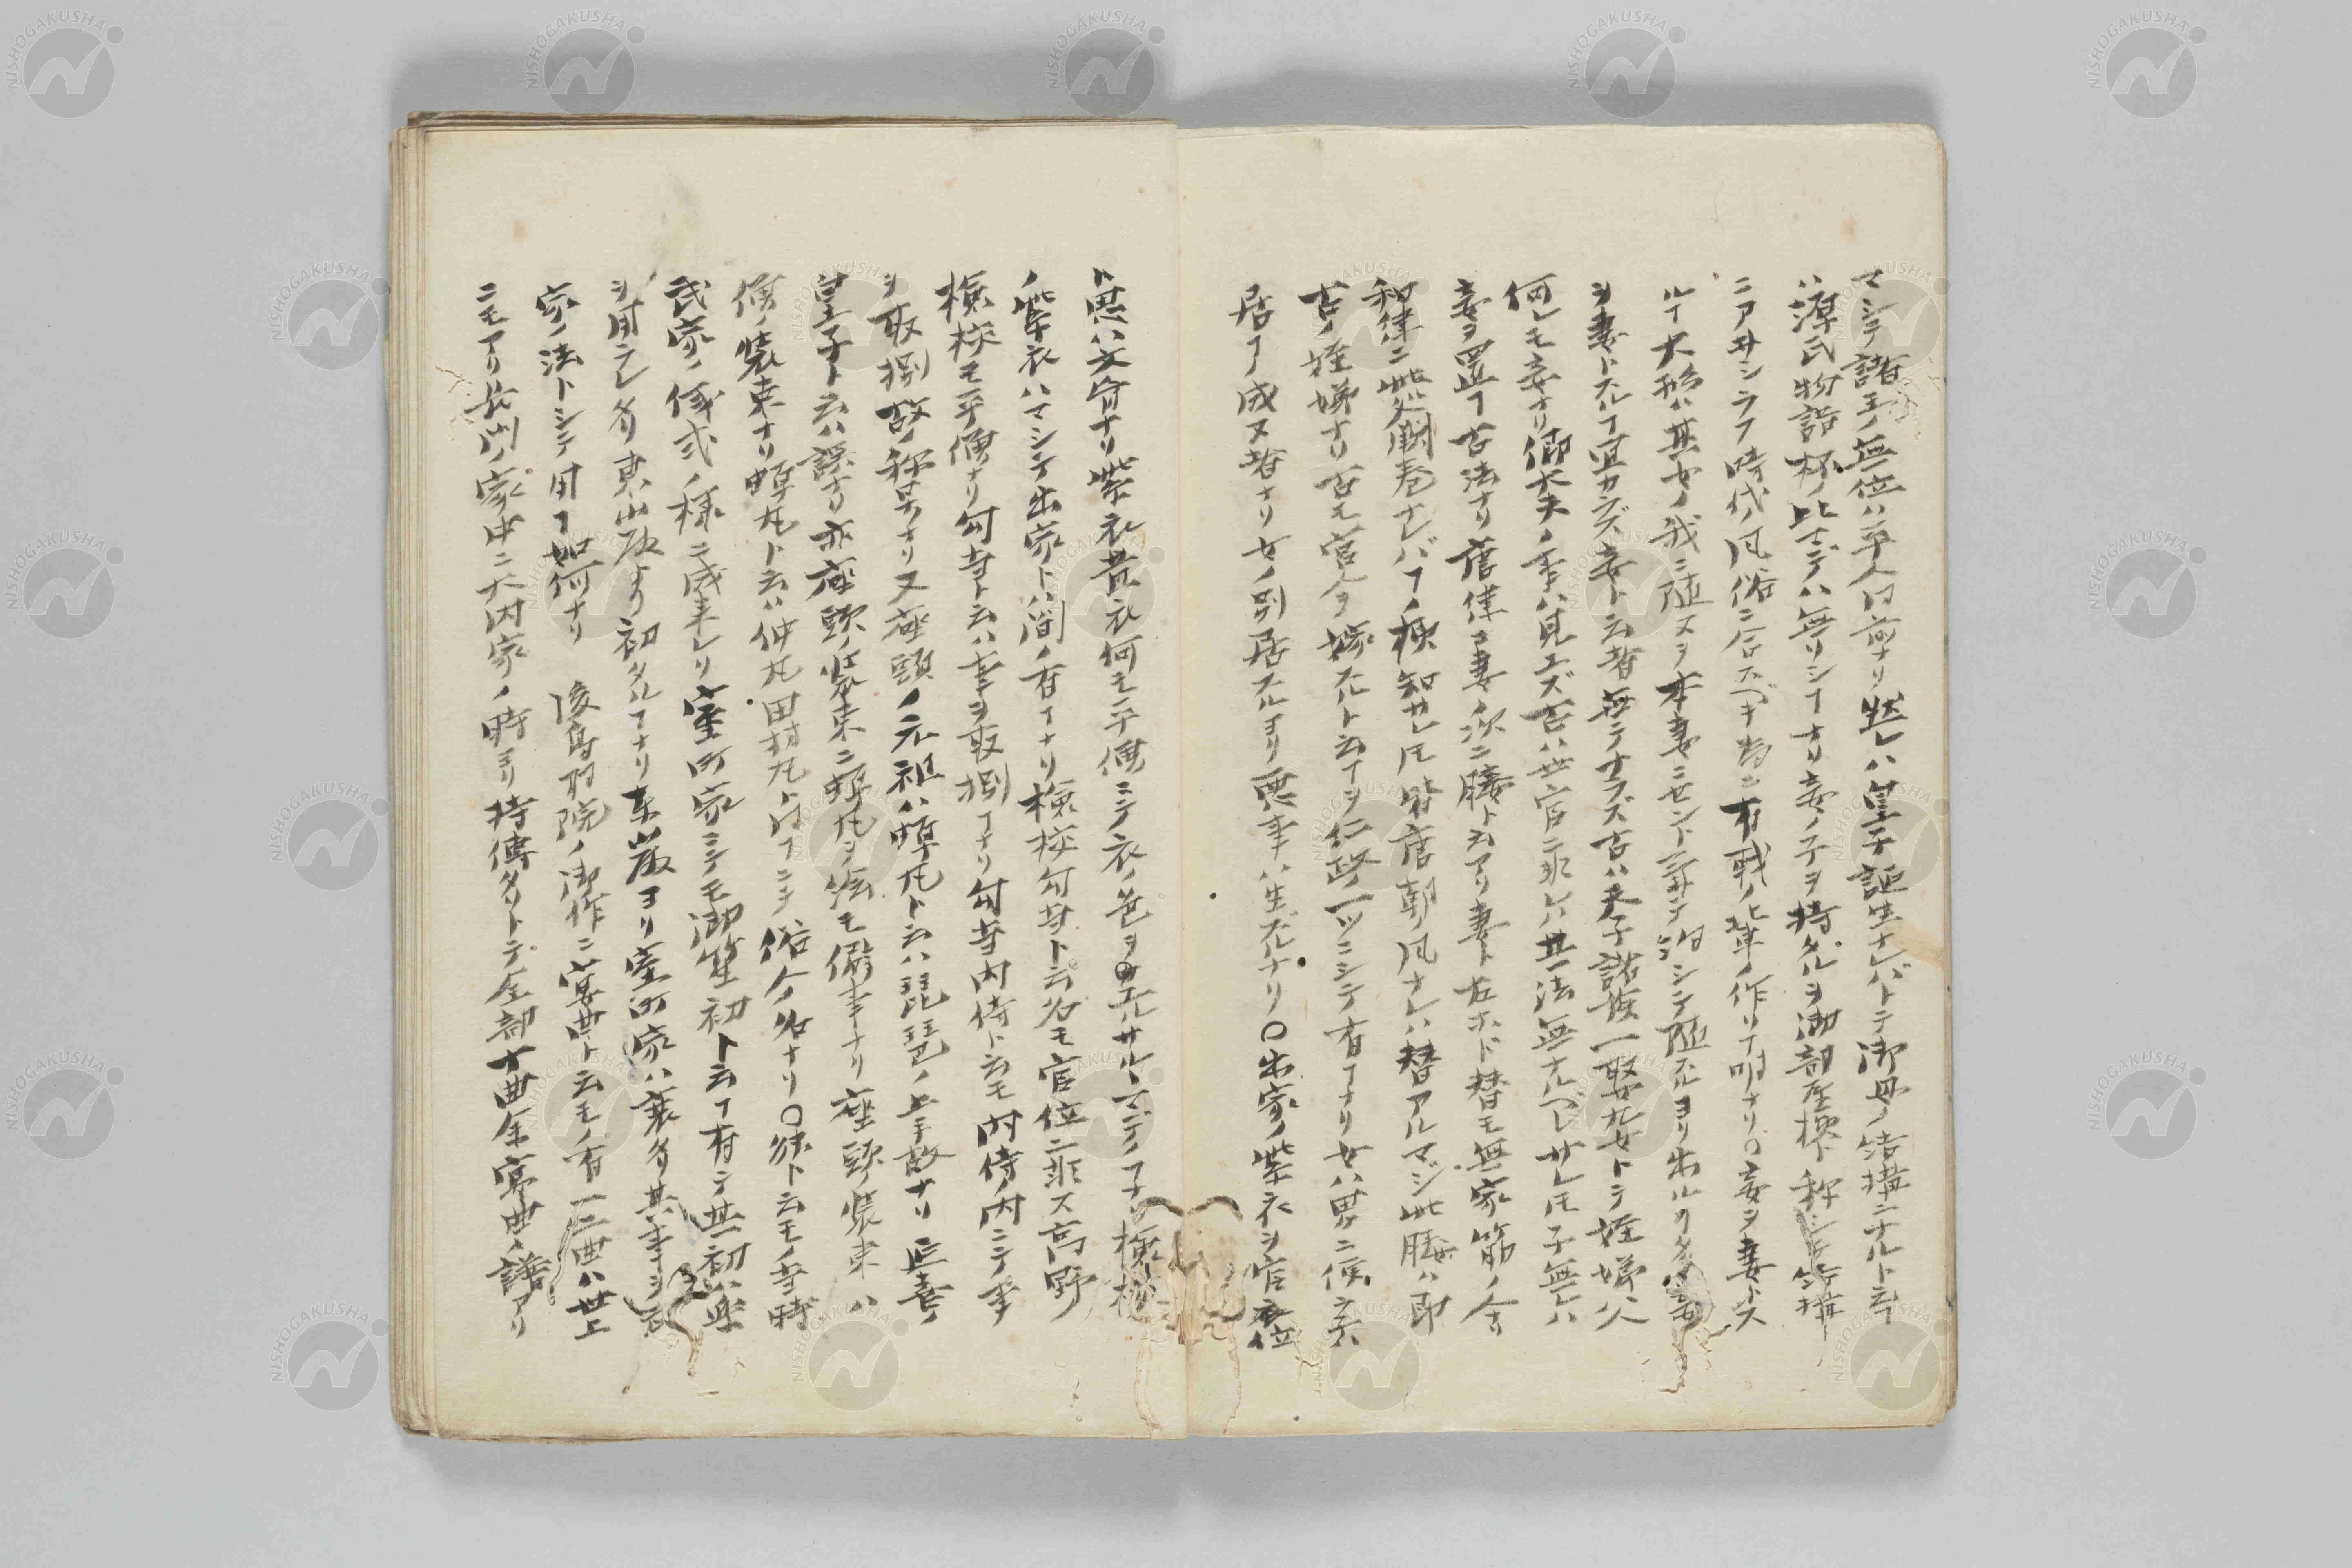 マシテ諸王ノ無位ハ平人同前ナリ然レハ皇子誕生ナレバトテ御母ノ結構ニナルト云
ハ源氏物語杯ノ比マデハ無リシナリ妾ノ子ヲ持タルヲ御部屋様ト称シテ結構
ニアヰシラフ時代ノ風俗ニ合スベキ為ニ有職ノ輩ノ作リ明ナリ○妾ヲ妻トス
ルヿ大形ハ其女ノ我ニ随ヌヲ本妻ニセント云
ヲ妻トスルヿ宜カラズ妾ト云者無テナラズ古ハ天子諸侯一娶九女トテ姪娣
何レモ妾ナリ卿大夫ノ事ハ見エズ古ハ世官ニ非レハ其法無ナルベシサレ𪜈子無レハ
妾ヲ置ヿ古法ナリ唐律ヲ妻ノ次ニ媵ト云アリ妻ト左ホド替モ無家筋ノ
和律ニ此処闕巻ナレバ知サレ𪜈皆唐朝ノ風ナレハ替アルマジ此媵ハ即
古ノ姪娣ナリ古モ宮人ヲ嫁スルト云ヿヲ仁政ノ一ツニシテ有ヿナリ女ハ男ニ
居ヿ成ヌ者ナリ女ノ別居スルヨリ悪事ハ生ズルナリ○出家ノ紫衣ヲ官衣位
ト思ハ文盲ナリ紫衣黄衣何モ平僧ニテ衣ノ色ヲユルサルヽマデノヿナリ検校
ノ紫衣ハマシテ出家トハ間ノ有ヿナリ検校勾当ト云名モ官位ニ非ス高野
検校モ平僧ナリ勾当ト云ハ事ヲ取捌ヿナリ勾当内侍ト云モ内侍ノ内ニテ事
ヲ取捌故ノ称号ナリ又座頭ノ元祖ハ蝉丸ト云ハ琵琶ノ上手故ナリ延喜ノ
皇子ト云ハ誤ナリ亦座頭ノ装束ニ蝉丸ヲ絵モ僻事ナリ座頭ノ装束ハ
僧ノ装束ナリ蝉丸ト云ハ仲丸田村丸ト同ヿニテ俗人ノ名ナリ○猿ト云モノ当時
武家ノ儀式ノ様ニ成来レリ室町家ニテモ御笙初ト云ヿ有テ其初ハ楽
ヲ用ラレタリ東山殿ヨリ初タルヿナリ東山殿ヨリ室町家ハ衰タリ其事ヲ武
家ノ法トシテ用ヿ如何ナリ　後鳥羽院ノ御作ニ宴曲ト云モノ有一二曲ハ世上
ニモアリ長門ノ家中ニ大内家ノ時ヨリ持傳タリトテ全部十曲余宴曲ノ譜アリ